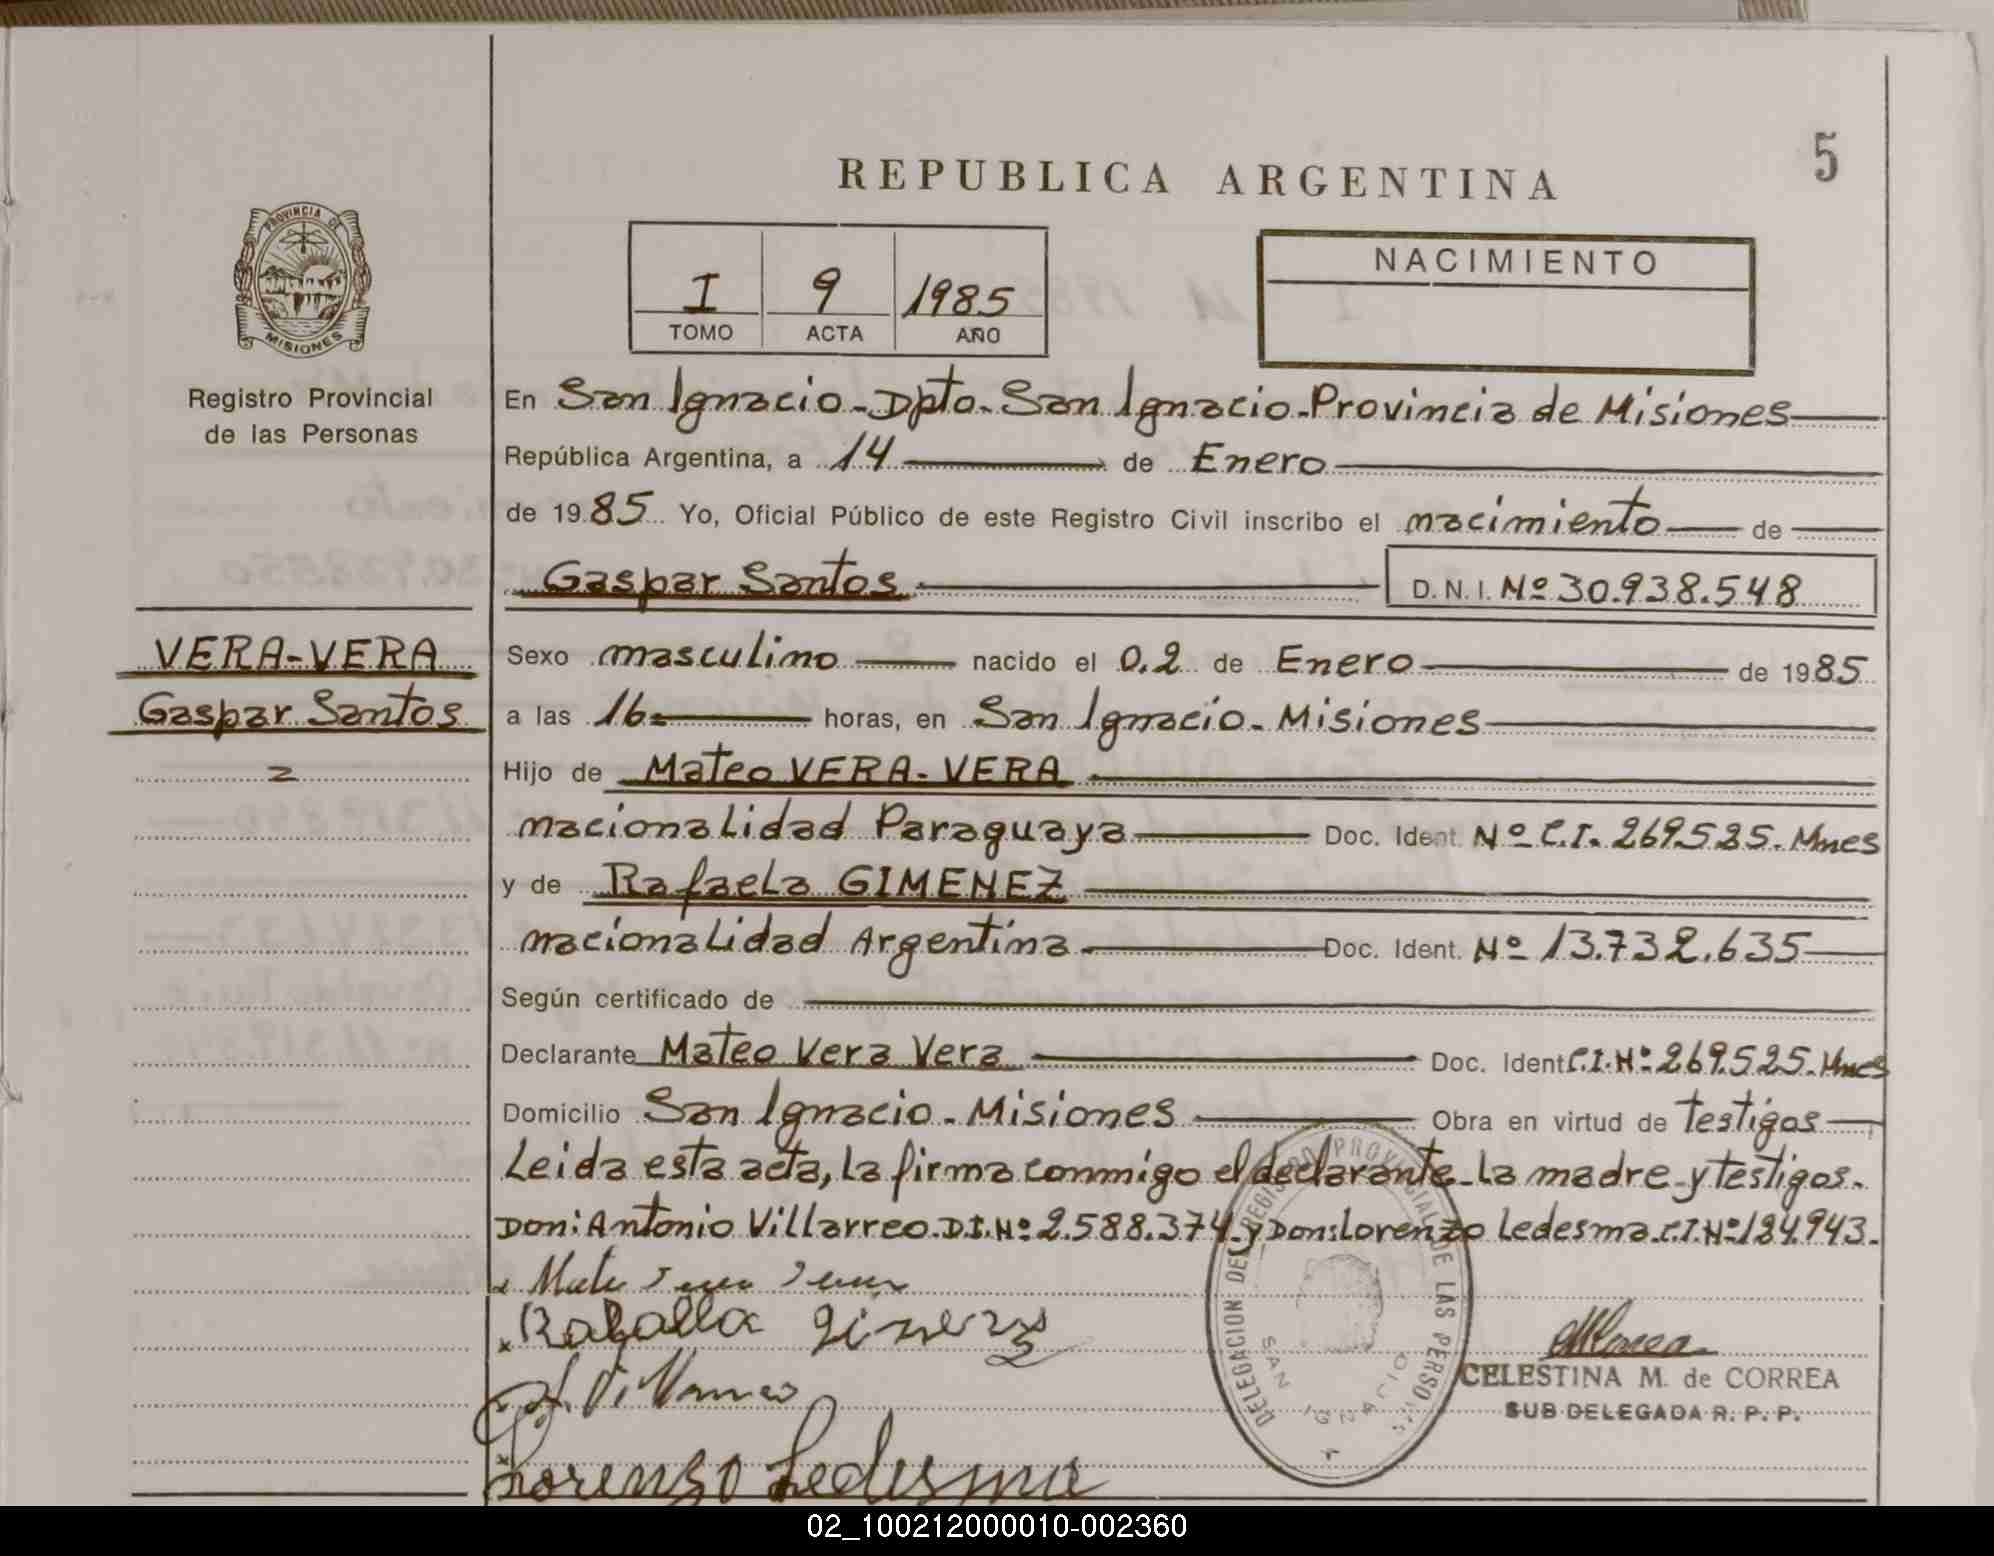 5
REPUBLICA ARGENTINA
PROVINCIA DE
MISIONES
Registro Provincial
de las Personas
I 9 1985
TOMO ACTA AÑO
NACIMIENTO
En San Ignacio-Dpto-San Ignacio-Provincia de Misiones
República Argentina, a 14 de Enero
de 1985 Yo, Oficial Público de este Registro Civil inscribo el nacimiento de
Gaspar Santos D.N.I. Nº 30.938.548
VERA-VERA
Gaspar Santos
Sexo masculino nacido el 0.2 de Enero de 1985
a las 16= horas, en San Ignacio-Misiones
Hijo de Mateo VERA-VERA
nacionalidad Paraguaya Doc. Ident. Nº C.I. 269.525.Mnes
y de Rafaela GIMENEZ
nacionalidad Argentina Doc. Ident. Nº 13.732.635
Según certificado de
Declarante Mateo Vera Vera Doc. Ident C.I.Nº 269.525.Mnes
Domicilio San Ignacio-Misiones Obra en virtud de testigos
Leida esta acta, la firma conmigo el declarante-la madre-y testigos.
Don: Antonio Villarreo.D.I.Nº 2.588.374-y Don:Lorenzo Ledesma.C.I.Nº 184.943.
Lorenzo Ledesma
DELEGACION DEL REGISTRO PROVINCIAL DE LAS PERSONAS
SAN IGNACIO
CELESTINA M. de CORREA
SUB DELEGADA R. P. P.
02_100212000010-002360